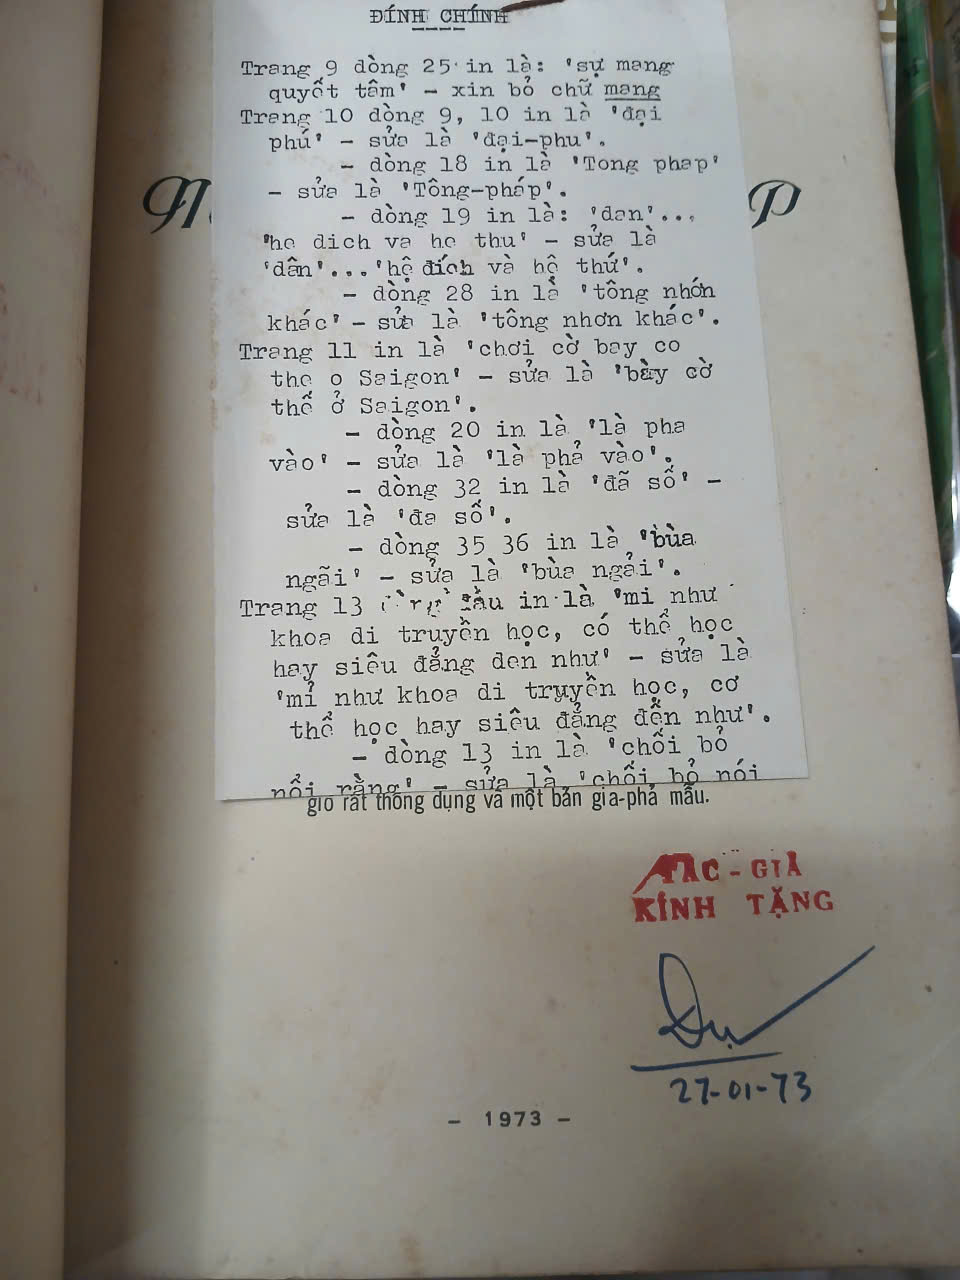 ĐÍNH CHÍNH
Trang 9 dòng 25 in là: 'sự mang
quyết tâm' - xin bỏ chữ mang
Trang 10 dòng 9, 10 in là 'đại
phú' - sửa là 'đại-phu'.
- dòng 18 in là 'Tong phap'
- sửa là 'Tông-pháp'.
- dòng 19 in là: 'dan'...
'he dich va he thu' - sửa là
'dân'...'hệ đích và hệ thứ'.
- dòng 28 in là 'tông nhớn
khác' - sửa là 'tông nhơn khác'.
Trang 11 in là 'chơi cờ bay co
the o Saigon' - sửa là 'bày cờ
thế ở Saigon'.
- dòng 20 in là 'là pha
vào' - sửa là 'là phả vào'.
- dòng 32 in là 'đã số' -
sửa là 'đa số'.
- dòng 35 36 in là 'bùa
ngãi' - sửa là 'bùa ngải'.
Trang 13 đầu in là 'mi như
khoa di truyền học, có thể học
hay siêu đẳng den như' - sửa là
'mỉ như khoa di truyền học, cơ
thể học hay siêu đẳng đến như'.
- dòng 13 in là 'chối bỏ
nổi rằng' - sửa là 'chối bỏ nói
giỗ rất thông dụng và một bản gia-phả mẫu.
TÁC - GIẢ
KÍNH TẶNG
27-01-73
- 1973 -